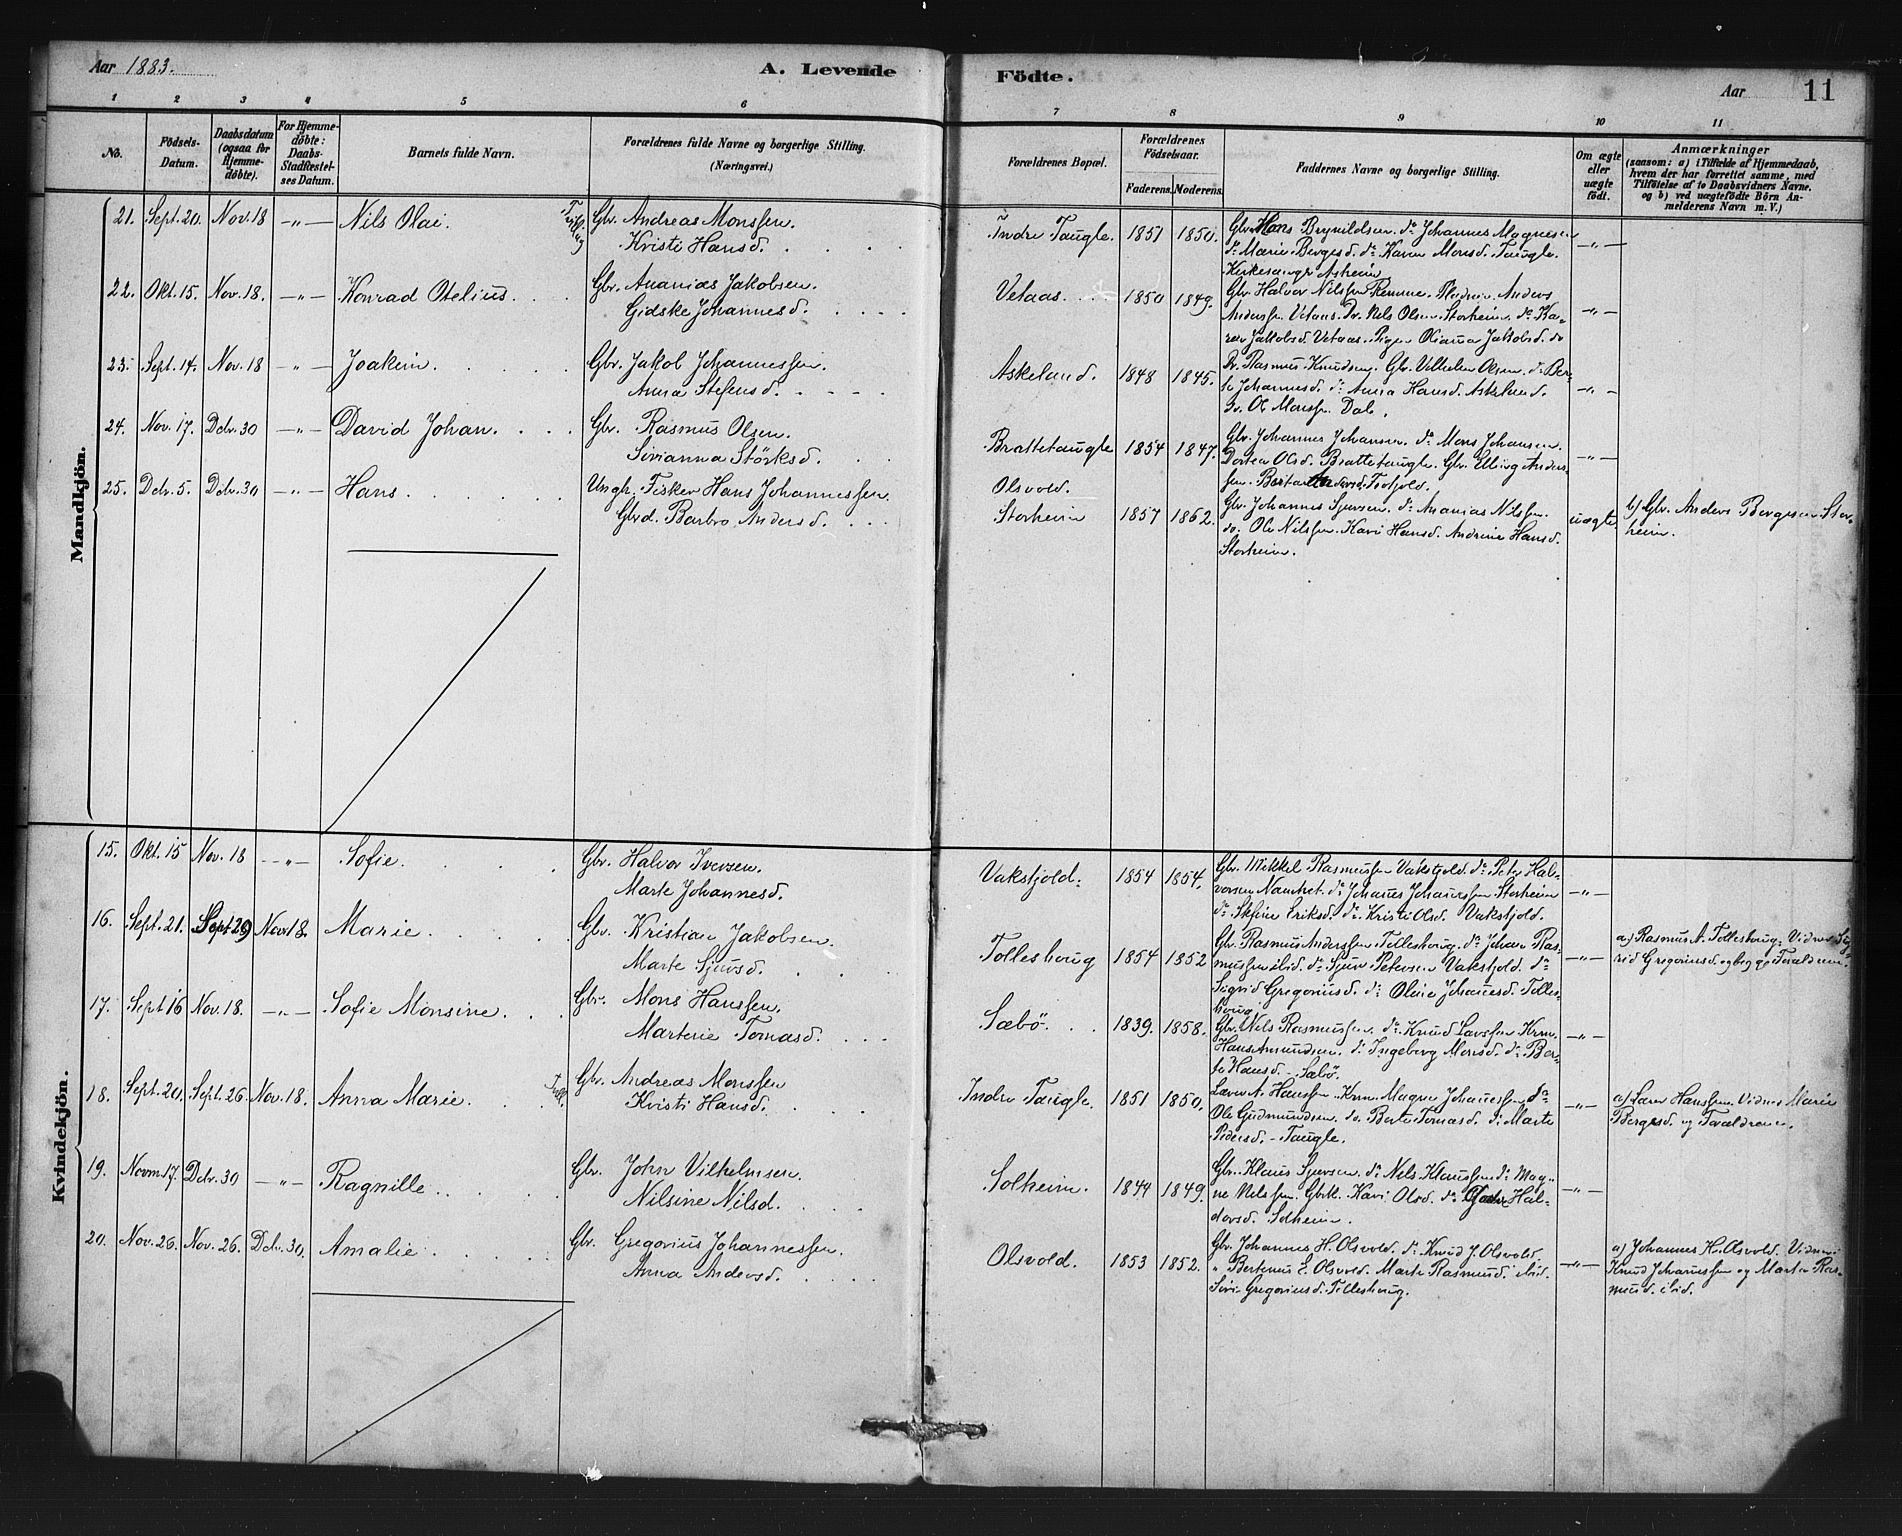 Aar 1883.
A. Levende
Födte.
Aar
11
1 2 3 4 5 6 7 8 9 10 11
No.
Födsels-Datum.
Daabsdatum (ogsaa for Hjemme-döbte).
For Hjemme-döbte: Daabs-Stadfæstel-ses Datum.
Barnets fulde Navn.
Forældrenes fulde Navne og borgerlige Stilling.
(Næringsvei.)
Forældrenes Bopæl.
Forældrenes Födselsaar.
Faderens. Moderens.
Faddernes Navne og borgerlige Stilling.
Om ægte eller uægte födt.
Anmærkninger
(saasom: a) i Tilfælde af Hjemmedaab,
hvem der har forrettet samme, med
Tilföielse af to Daabsvidners Navne,
og b) ved uægtefödte Börn An-
melderens Navn m. V.)
Mandkjön.
21. Sept. 20. Nov. 18 —„— Nils Olai. Tvilling Gbr. Andreas Monssen.
Kristi Hansd.
Indre Taugle. 1851 1850.
Gbr. Hans Brynildsen. do Johannes Magnesen
do Marie Bergesd. do Karen Monsd. Taugle.
Kirkesanger Asheim
—„—
22. Okt. 15. Nov. 18. —„— Konrad Otelius. Gbr. Ananias Jakobsen.
Gidske Johannesd.
Vetaas. 1850 1849.
Gbr. Halvor Nilssen Remme. Anders
Anderss. Vetaas. Dr. Nels Olsen Storheim. do Ka-
ren Jakobsd. Vetaas. Pige Oliana Jakobsd. do
—„—
23. Sept. 14. Nov. 18 —„— Joakim. Gbr. Jakob Johannessen.
Anna Stefensd.
Askeland. 1848 1845.
Dr. Rasmus Knudsen. Gbr. Vilhelm Olsen. do Ber-
te Johannesd. do Anna Hansd. Askeland.
Ol Monssen Dale.
—„—
24. Nov. 17. Dcbr. 30 —„— David Johan. Gbr. Rasmus Olsen.
Sirianna Störksd.
Brattetaugle 1854 1847.
Gbr. Johannes Johansen. do Mons Johansen.
Dorten Olsd. Brattetaugle. Gbr. Elling Anders-
sen. Berta Andersd.
—„—
25. Dcbr. 5. Dcbr. 30 —„— Hans. Ungk. Fisker Hans Johannessen
Gbrd. Barbro Andersd.
Olsvold.
Storheim 1857 1862.
Gbr. Johannes Sjursen. do Ananias Nilssen.
do. Ole Nilssen. Kari Hansd. Andrine Hansd.
Storheim.
uægte
b) Gbr. Anders Bergesen Stor-
heim.
Kvindekjön.
15. Okt. 15 Nov. 18 —„— Sofie. Gbr. Halvor Iversen.
Marte Johannesd.
Vakstjold. 1854 1854.
Gbr. Mikkel Rasmussen Vakstjold. do Peter Hal-
vorsen Namtvet. do Johannes Johannssen Storheim
do Eriksd. do Kristi Olsd. Vakstjold.
—„—
16. Sept. 21. Sept 29 Nov. 18. Marie. Gbr. Kristian Jakobsen.
Marte Sjursd.
Tollesboug 1854 1852
Gbr. Rasmus Anderssen Tollesboug. do Johan Ras-
mussen ibid. do Sjur Petersen Vakstjold. do
Sigrid Gregoriusd. do Oline Johannesd. Tolles-
boug.
—„—
a) Rasmus A. Tollesboug. Vidner Sig-
rid Gregoriusd. og begge Forældrene.
17. Sept 16 Nov. 18. —„— Sofie Monsine. Gbr. Mons Hanssen.
Marterie Tomasd.
Sæbö. 1839. 1858.
Gbr. Nels Rasmussen. do Knud Larssen Krm.
Hans Amundsen. do Ingeborg Monsd. do Ber-
te Hansd. Sæbö.
—„—
18. Sept. 20. Sept. 26 Nov. 18. Anna Marie. Tvill. Gbr. Andreas Monssen
Kristi Hansd.
Indre Taugle. 1851 1850.
Hanssen. Krm. Magne Johannessen do
Ole Gudmundsen. do. Berte Tomasd. do Marte
Pedersd. Taugle.
—„—
a) Lars Hanssen. Vidner Marie
Bergesd. og Forældrene.
19. Novm. 17. Dcbr. 30 —„— Ragnille. Gbr. John Vilhelmsen
Nilsine Nilsd.
Solheim. 1844 1849.
Gbr. Klaus Sjursen. do Nels Klaussen do Mag-
ne Nelssen. Gbrk. Kari Olsd. do Hal-
dorsd. Solheim.
—„—
20. Nov. 26. Nov. 26. Dcbr. 30. Amalie. Gbr. Gregorius Johannessen.
Anna Andersd.
Olsvold. 1853 1852.
Gbr. Johannes H. Olsvold. do Knud J. Olsvold.
„ Bertinus E. Olsvold. Marte Rasmusd. ibid.
Siri Gregoriusd. Tollesboug.
—„—
a) Johannes H. Olsvold. Vidner
Knud Johannssen og Marte Ras-
musd. ibid.